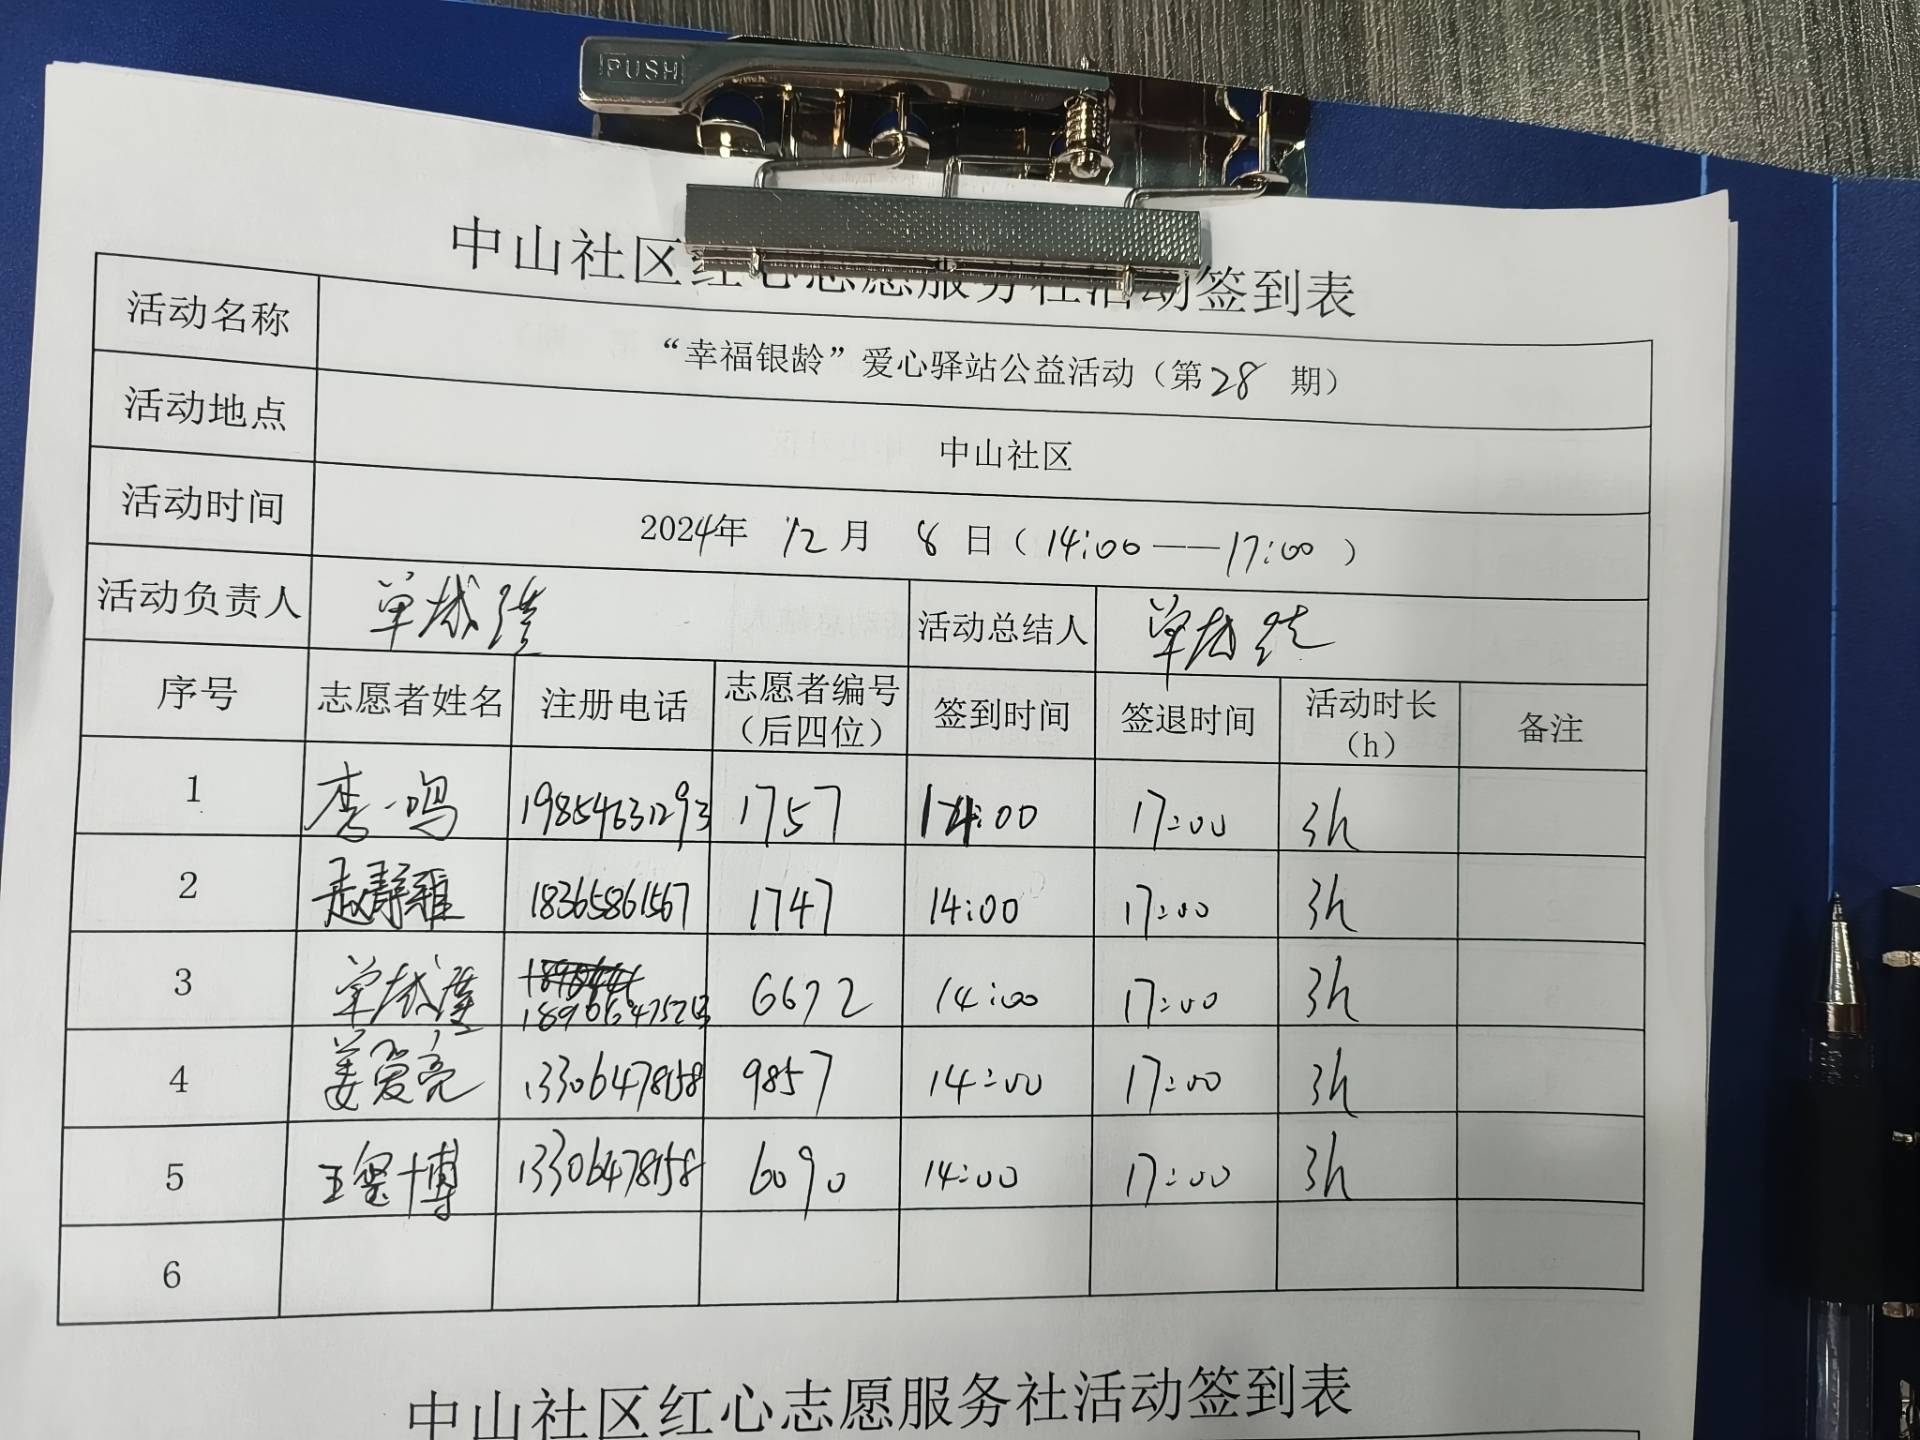 PUSH
中山社区红心志愿服务社活动签到表
活动名称 “幸福银龄”爱心驿站公益活动（第28 期）
活动地点 中山社区
活动时间 2024年 12月 8 日（14:00——17:00）
活动负责人 单 活动总结人 单
序号 志愿者姓名 注册电话 志愿者编号（后四位） 签到时间 签退时间 活动时长（h） 备注
1 李一鸣 19854631293 1757 14:00 17:00 3h
2 赵静雅 18365861567 1747 14:00 17:00 3h
3 单 6672 14:00 17:00 3h
4 姜爱亮 13306478158 9857 14:00 17:00 3h
5 王 博 13306478158 6090 14:00 17:00 3h
6
中山社区红心志愿服务社活动签到表